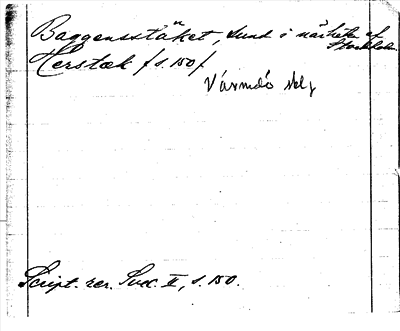 Baggensstäket, sund i närheten af Stockholm
Herstæk /s. 150/
Värmdö skg
Script. rer. Svec. II, s. 150.